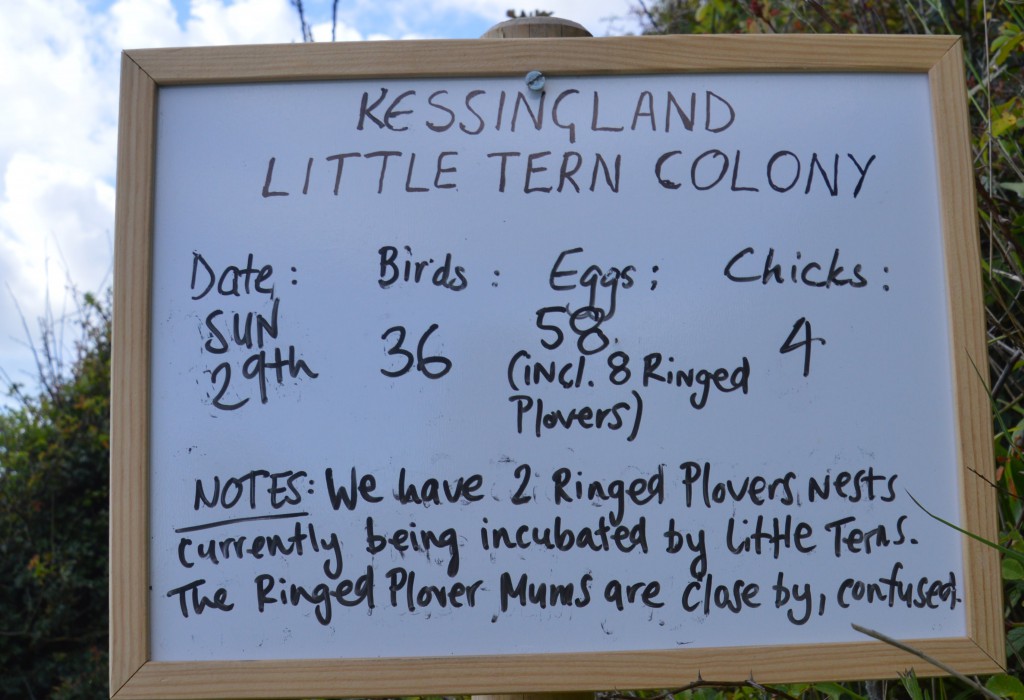 KESSINGLAND
LITTLE TERN COLONY
Date: Birds: Eggs; Chicks:
SUN 29th 36 58. 4
(incl. 8 Ringed Plovers)
NOTES: We have 2 Ringed Plovers Nests
currently being incubated by Little Terns.
The Ringed Plover Mums are close by, confused.